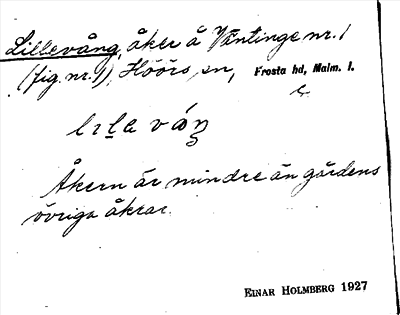 Lillevång, åker å Väntinge nr. 1
(fig. nr. 1), Höörs sn, Frosta hd, Malm. l.
Åkern är mindre än gårdens
övriga åkrar.
EINAR HOLMBERG 1927